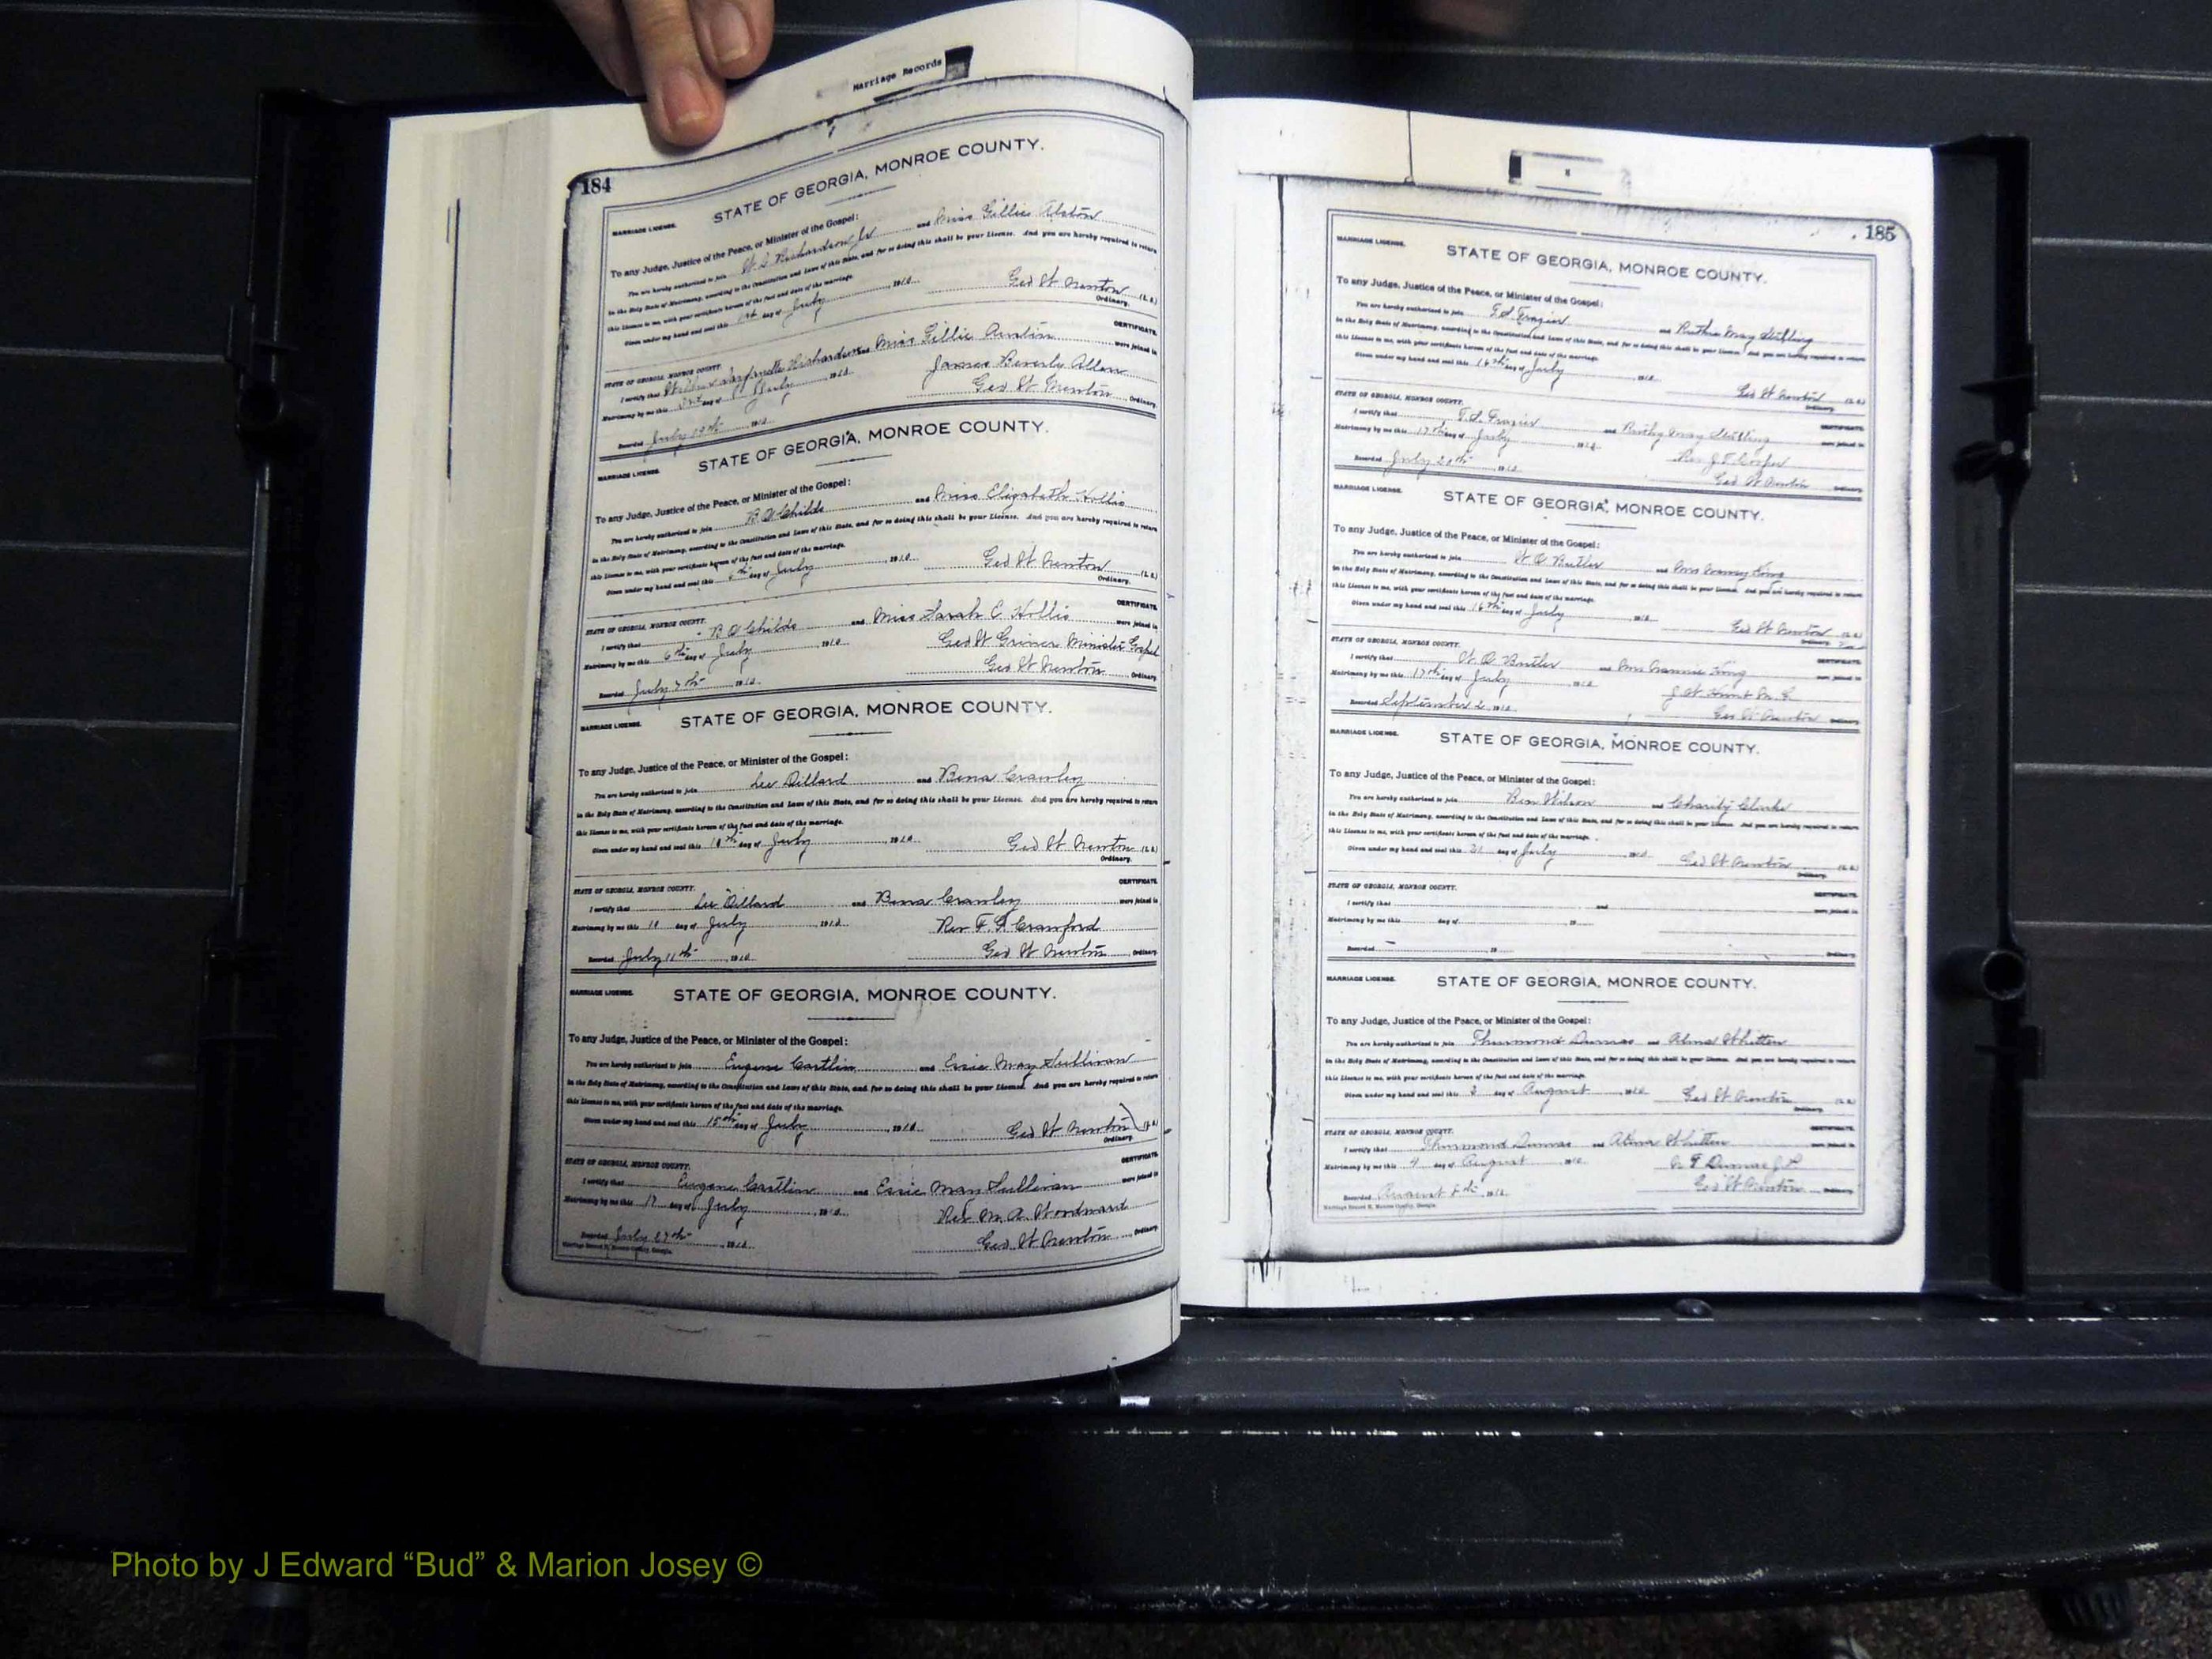 Marriage Records
184
STATE OF GEORGIA, MONROE COUNTY.
MARRIAGE LICENSE.
To any Judge, Justice of the Peace, or Minister of the Gospel:
You are hereby authorized to join W. S. Richardson Jr and Miss Gillie Alston
in the Holy State of Matrimony, according to the Constitution and Laws of this State, and for so doing this shall be your License. And you are hereby required to return
this License to me, with your certificate hereon of the fact and date of the marriage.
Given under my hand and seal this day of July, 1910 Geo W Newton (L.S.)
Ordinary.
CERTIFICATE.
STATE OF GEORGIA, MONROE COUNTY.
I certify that Richardson and Miss Gillie Austin were joined in
Matrimony by me this day of July 1910 James Beverly Allen
Recorded July 1910 Geo W Newton Ordinary.
STATE OF GEORGIA, MONROE COUNTY.
MARRIAGE LICENSE.
To any Judge, Justice of the Peace, or Minister of the Gospel:
You are hereby authorized to join B O Childs and Miss Elizabeth Hollis
in the Holy State of Matrimony, according to the Constitution and Laws of this State, and for so doing this shall be your License. And you are hereby required to return
this License to me, with your certificate hereon of the fact and date of the marriage.
Given under my hand and seal this day of July, 1910 Geo W Newton (L.S.)
Ordinary.
CERTIFICATE.
STATE OF GEORGIA, MONROE COUNTY.
I certify that B O Childs and Miss Sarah C Hollis were joined in
Matrimony by me this 6th day of July, 1910 Geo W Griner Minister Gospel
Recorded July 7th 1910 Geo W Newton Ordinary.
MARRIAGE LICENSE. STATE OF GEORGIA, MONROE COUNTY.
To any Judge, Justice of the Peace, or Minister of the Gospel:
You are hereby authorized to join Lee Dillard and Bena Crawley
in the Holy State of Matrimony, according to the Constitution and Laws of this State, and for so doing this shall be your License. And you are hereby required to return
this License to me, with your certificate hereon of the fact and date of the marriage.
Given under my hand and seal this 10th day of July, 1910 Geo W Newton (L.S.)
Ordinary.
CERTIFICATE.
STATE OF GEORGIA, MONROE COUNTY.
I certify that Lee Dillard and Bena Crawley were joined in
Matrimony by me this 10 day of July, 1910 Rev F. G Crawford
Recorded July 11th 1910 Geo W Newton Ordinary.
MARRIAGE LICENSE. STATE OF GEORGIA, MONROE COUNTY.
To any Judge, Justice of the Peace, or Minister of the Gospel:
You are hereby authorized to join Eugene Castlin and Essie May Sullivan
in the Holy State of Matrimony, according to the Constitution and Laws of this State, and for so doing this shall be your License. And you are hereby required to return
this License to me, with your certificate hereon of the fact and date of the marriage.
Given under my hand and seal this 15th day of July, 1910 Geo W Newton (L.S.)
Ordinary.
CERTIFICATE.
STATE OF GEORGIA, MONROE COUNTY.
I certify that Eugene Castlin and Essie May Sullivan were joined in
Matrimony by me this 17 day of July, 1910 Rev M. A. Woodward
Recorded July 27th, 1910 Geo W Newton Ordinary.
Marriage Record H, Monroe County, Georgia.
185
MARRIAGE LICENSE. STATE OF GEORGIA, MONROE COUNTY.
To any Judge, Justice of the Peace, or Minister of the Gospel:
You are hereby authorized to join T. S. Frazier and Ruthie May Stilling
in the Holy State of Matrimony, according to the Constitution and Laws of this State, and for so doing this shall be your License. And you are hereby required to return
this License to me, with your certificate hereon of the fact and date of the marriage.
Given under my hand and seal this 16th day of July 1910 Geo W Newton (L.S.)
Ordinary.
CERTIFICATE.
STATE OF GEORGIA, MONROE COUNTY.
I certify that T. S. Frazier and Ruthy May Stilling were joined in
Matrimony by me this 17th day of July, 1910 Rev J. T. Cooper
Recorded July 20th 1910 Geo W Newton Ordinary.
MARRIAGE LICENSE. STATE OF GEORGIA, MONROE COUNTY.
To any Judge, Justice of the Peace, or Minister of the Gospel:
You are hereby authorized to join W. O Butler and King
in the Holy State of Matrimony, according to the Constitution and Laws of this State, and for so doing this shall be your License. And you are hereby required to return
this License to me, with your certificate hereon of the fact and date of the marriage.
Given under my hand and seal this 16th day of July, 1910 Geo W Newton (L.S.)
Ordinary.
CERTIFICATE.
STATE OF GEORGIA, MONROE COUNTY.
I certify that W. O Butler and Nannie King were joined in
Matrimony by me this 17th day of July, 1910 J. W. Hunt M. G.
Recorded September 2, 1910 Geo W Newton Ordinary.
MARRIAGE LICENSE. STATE OF GEORGIA, MONROE COUNTY.
To any Judge, Justice of the Peace, or Minister of the Gospel:
You are hereby authorized to join Ben Wilson and Charity Clarke
in the Holy State of Matrimony, according to the Constitution and Laws of this State, and for so doing this shall be your License. And you are hereby required to return
this License to me, with your certificate hereon of the fact and date of the marriage.
Given under my hand and seal this 21 day of July, 1910 Geo W Newton (L.S.)
Ordinary.
CERTIFICATE.
STATE OF GEORGIA, MONROE COUNTY.
I certify that and were joined in
Matrimony by me this day of, 19
Recorded 19 Ordinary.
MARRIAGE LICENSE. STATE OF GEORGIA, MONROE COUNTY.
To any Judge, Justice of the Peace, or Minister of the Gospel:
You are hereby authorized to join Thurmond Dumas and Alma Whitten
in the Holy State of Matrimony, according to the Constitution and Laws of this State, and for so doing this shall be your License. And you are hereby required to return
this License to me, with your certificate hereon of the fact and date of the marriage.
Given under my hand and seal this 3 day of August, 1910 Geo W Newton (L.S.)
Ordinary.
CERTIFICATE.
STATE OF GEORGIA, MONROE COUNTY.
I certify that Thurmond Dumas and Alma Whitten were joined in
Matrimony by me this 4 day of August 1910 Dumas J. P.
Recorded August 1910 Geo W Newton Ordinary.
Marriage Record H, Monroe County, Georgia.
Photo by J Edward “Bud” & Marion Josey ©